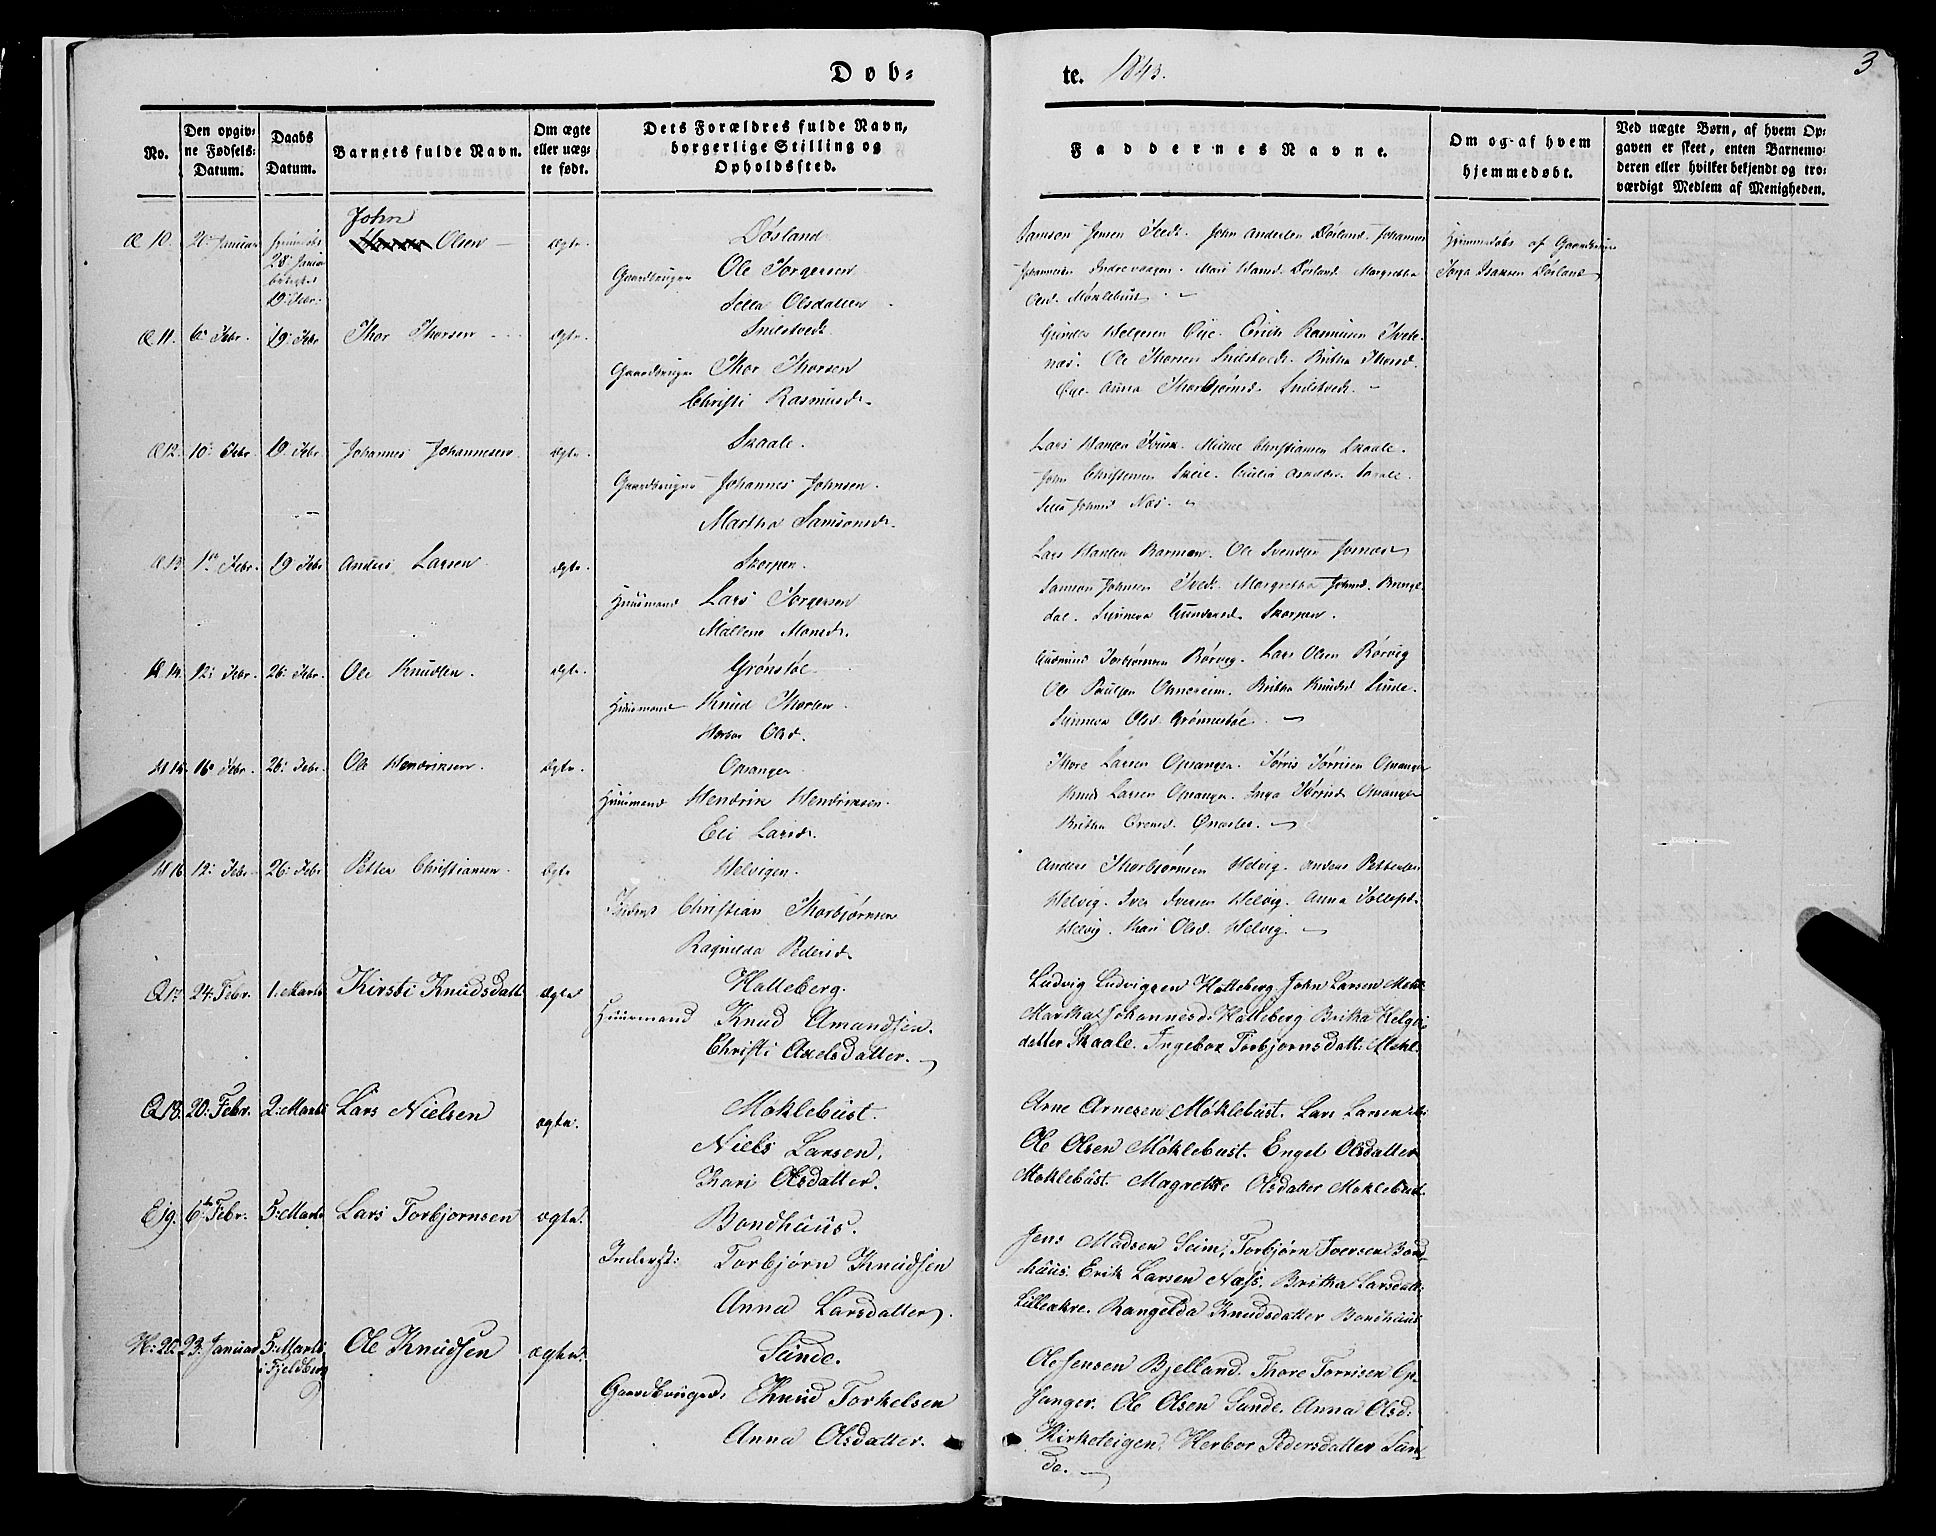 Døb=
te. 1843.
3
No.
Den opgiv=
ne Fødsels=
Datum.
Daabs
Datum.
Barnets fulde Navn.
Om ægte
eller uæg=
te født.
Dets Forældres fulde Navn,
borgerlige Stilling og
Opholdssted.
Faddernes Navne.
Om og af hvem
hjemmedøbt.
Ved uægte Børn, af hvem Op=
gaven er skeet, enten Barnemo=
deren eller hvilket bekjendt og tro=
værdigt Medlem af Menigheden.
John
Æ 10. 20 Januar 28 Januar 19 Febr. Olsen ægte.
Døsland
Gaardbruger Ole Torgersen
Sella Olsdatter
Samson Jensen Tvedt. John Andersen Døsland. Johannes
Johannesen Indrevaagen. Mari Hansd. Døsland. Margretha
Olsd. Møklebust
Hjemmedøbt af Gaardbruger
Isaksen Døsland
Æ 11. 6te Febr. 19 Febr. Thor Thorsen ægte.
Snilstvedt
Gaardbruger Thor Thorsen
Christi Rasmusdr.
Gunder Helgesen Øye. Erich Rasmusen Tvede
næs. Ole Thorsen Snilstvedt. Britha Thorsd.
Øye. Anna Thorbjørnsd. Snilstvedt.
Æ 12. 10: Febr. 19 Febr. Johannes Johannesen ægte.
Skaale.
Gaardbruger Johannes Johnsen.
Martha Samsonsdr.
Lars Hansen. Michel Christiansen Skaale.
John Christensen Skeie. Skaale.
Sella Johnsd Næs.
Æ 13 1ste Febr. 19 Febr. Anders Larsen ægte.
Skorpen.
Huusmand Lars Torgersen
Mallena Monsdr.
Lars Hansen. Ole Svendsen
Samson Johnsen Tvedt. Margretha Johnsd.
dal. Sunneva Gundersd. Skorpen.
H 14. 12: Febr. 26: Febr. Ole Knudsen. ægte.
Grønstøe.
Huusmand Knud Thorsen.
Herbor Olsd.
Gudmund Torbjørnsen Rørvig. Lars Olsen Rørvig
Ole Paulsen Omvikim. Britha Knudsd Sunde.
Sunneva Olsd. Grønnestøe.
H 15. 16: Febr. 26: Febr. Ole Hendriksen. ægte.
Opsanger
Huusmand Hendrik Hendriksen.
Eli Larsdr.
Thore Larsen Opsanger. Tørris Tørrisen Opsanger
Knud Larsen Opsanger. Inga Tørrisd. Opsanger
Britha
H 16 12: Febr. 26: Febr. Petter Christiansen. ægte
Helvigen.
Inderst Christian Thorbjørnsen
Ragnilda Pedersd.
Anders Thorbjørnsen Helvig. Anders Pettersen
Helvig. Iver Iversen Helvig. Anna Tollefsd.
Helvig. Kari Olsd. Helvig.
Æ 17. 24: Febr. 1. Marts Kirsti Knudsdatt. ægte
Halleberg.
Huusmand Knud Amundsen.
Christi Axelsdatter.
Ludvig Ludvigsen Halleberg. John Larsen Møkl.
Martha Johannesd: Halleberg Britha Helge
datter Skaale. Ingebor Torbjornsdatt: Møkl.
Æ 18. 20: Febr. 2: Marts Lars Nielsen ægte.
Møklebust.
Niels Larsen,
Kari Olsdatter.
Arne Arnesen Møklebust. Lars Larsen
Ole Olsen Møklebust. Engel Olsdatter
Møklebust. Magrethe Olsdatter Møklebust.
E 19. 6te Febr. 5: Marts Lars Torbjornsen ægte.
Bondhuus.
Inderst: Torbjørn Knudsen
Anna Larsdatter.
Jens Madsen Seim, Torbjørn Iversen Bond
huus. Erik Larsen Næss, Britha Larsdatt.
Lilleakre. Rangelda Knudsdatter Bondhuus
H: 20. 23: Januar 5: Marts i Fjeldberg Ole Knudsen ægte.
Sunde.
Gaardbruger. Knud Torkelsen
Anna Olsdatter.
Ole Jensen Bjelland. Thore Torrisen Op-
sanger. Ole Olsen Sunde. Anna Olsd:
Kirkeleigen, Herbor Pedersdatter Sun-
de.